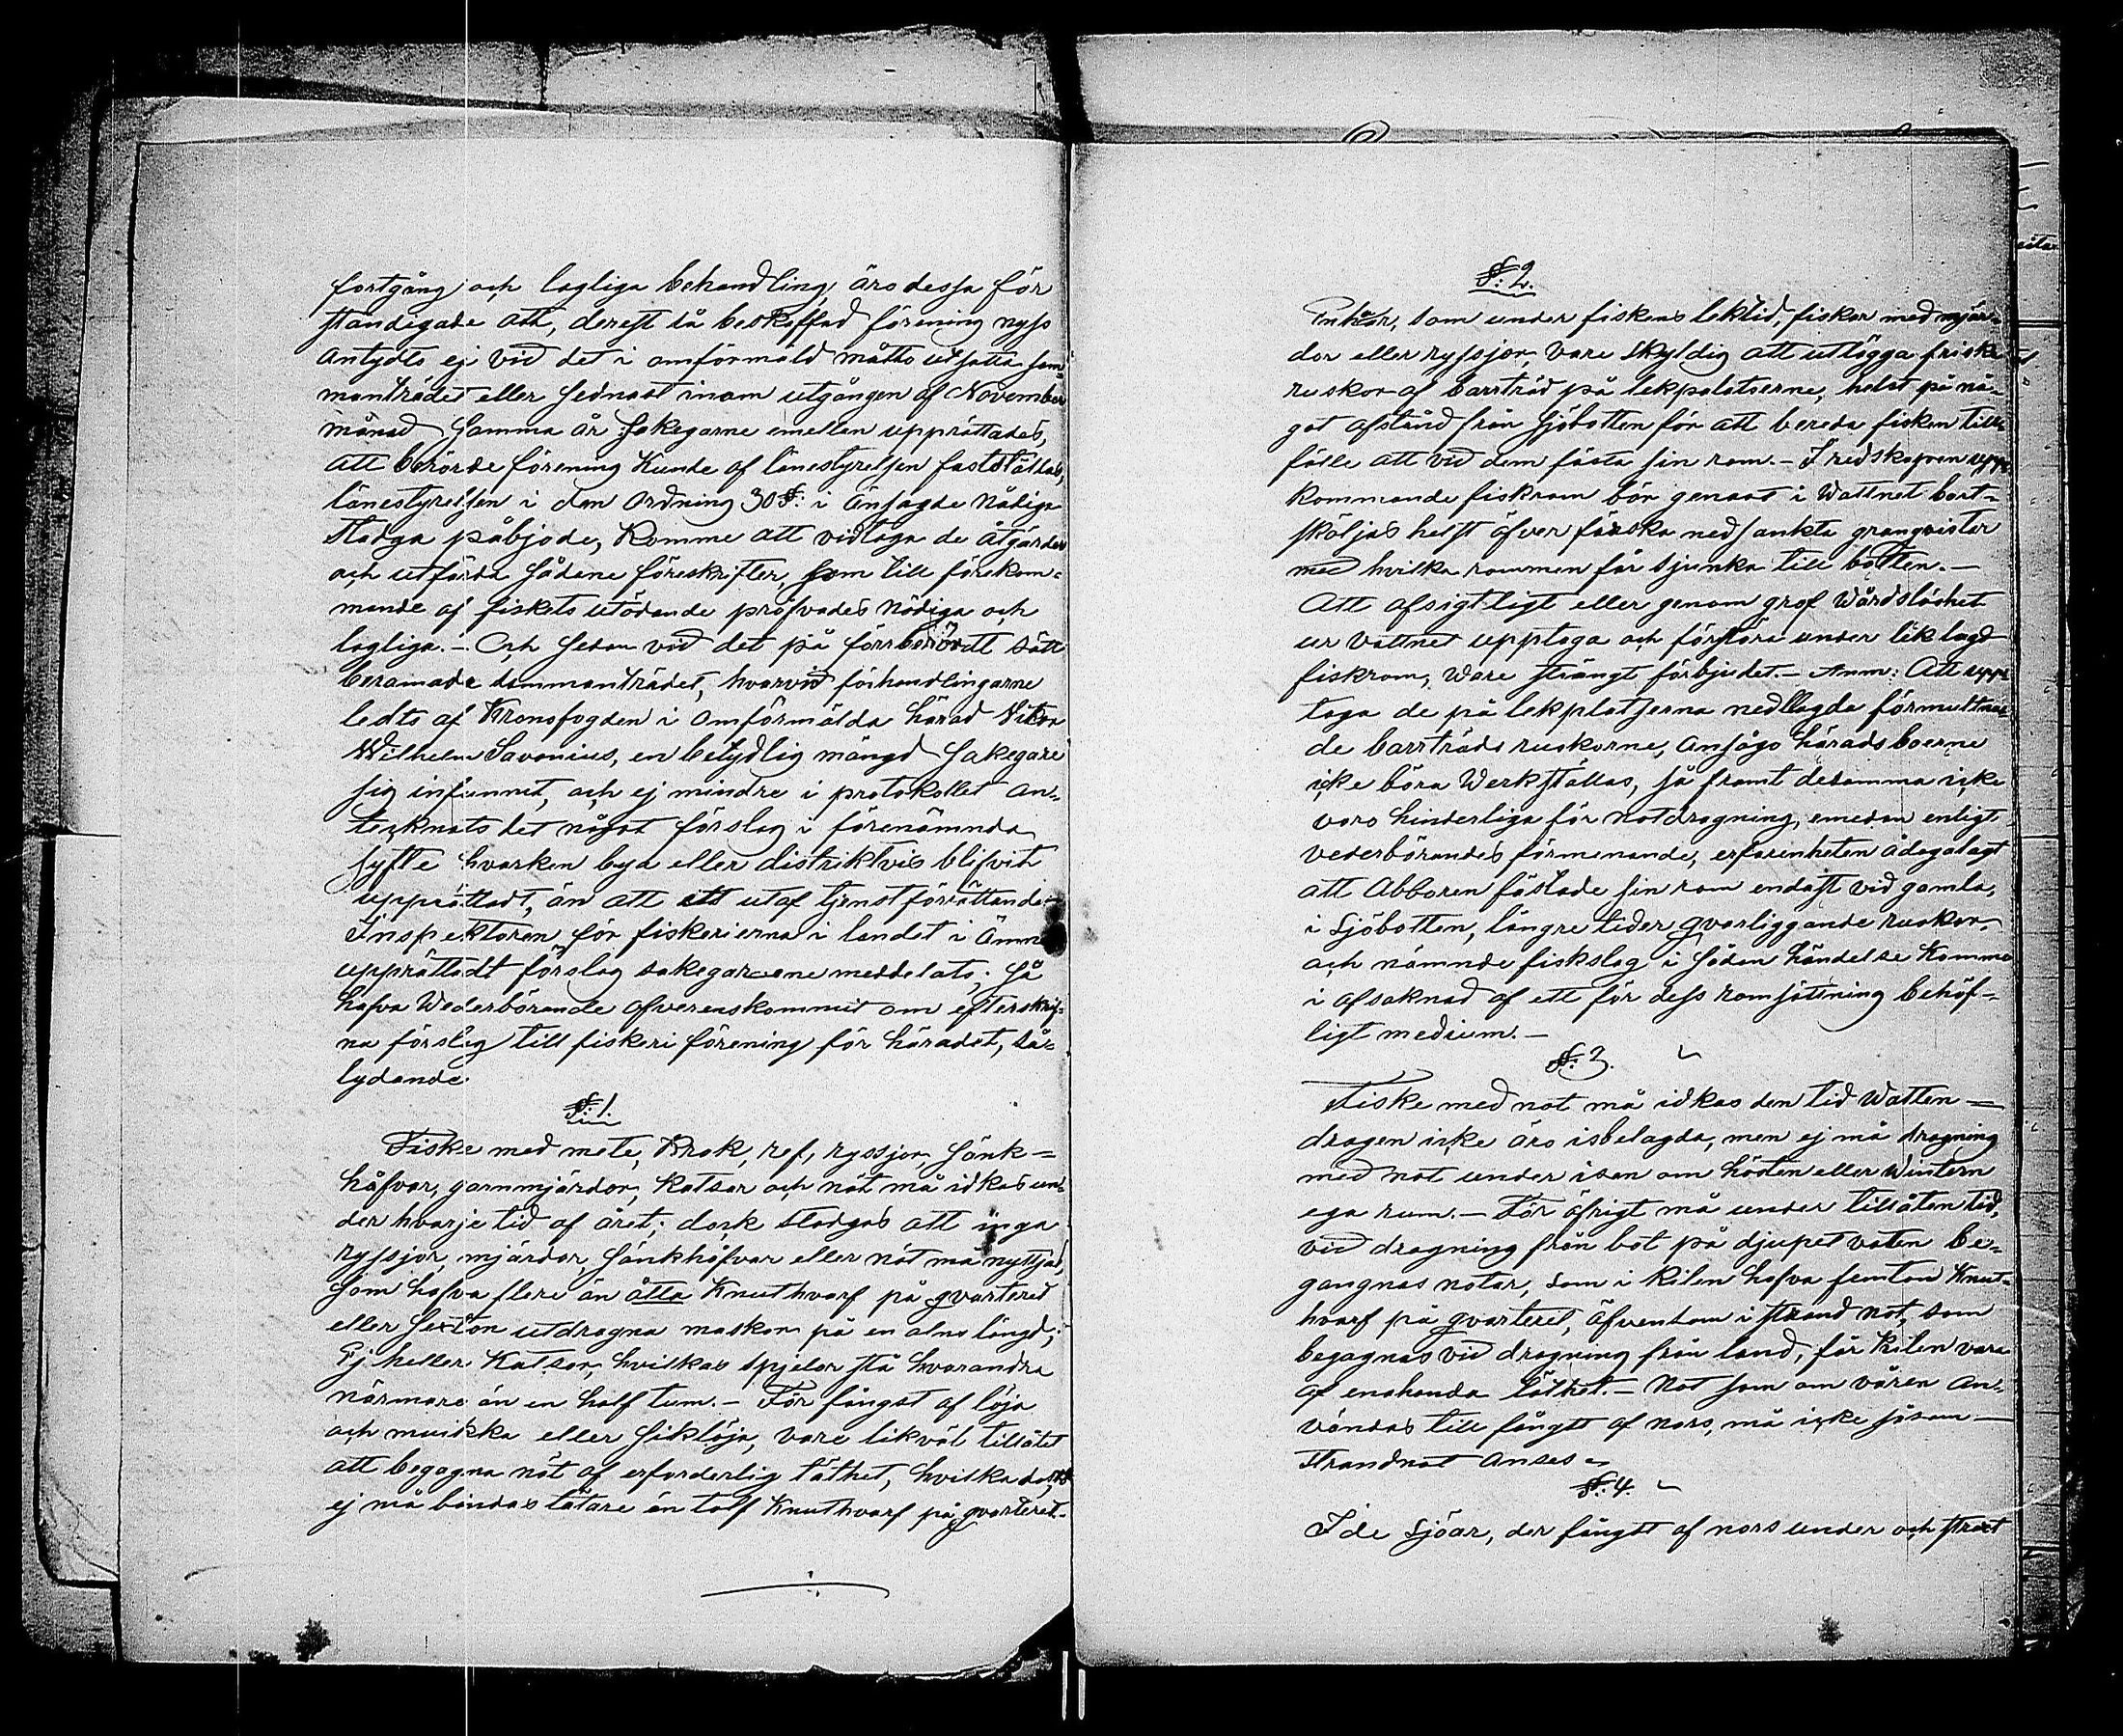 fortgång och lagliga behandling, äro dessa för
ständigade att, derest så beskaffad förening nyss
antydts ej vid det i omförmäld måtto utsatta sam=
manträdet eller sednast inom utgången af November
månad samma år sakegarne emellan upprättades,
att berörde förening kunde af länestyrelsen fastställas,
länestyrelsen i den ordning 30 §: i änsagde Nådiga
stadga påbjöde, komme att vidtaga de åtgärder
och utfärda sådane föreskrifter, som till förekom=
mande af fiskets utödande pröfvades nödiga och
lagliga. – Och sedan vid det på förrberördt sätt
beramade sammanträdet, hvarvid förhandlingarne
ledts af Kronofogden i omförmälda härad Viktor
Wilhelm Savonius, en betydlig mängd sakegare
sig infunnit, och ej mindre i protokollet an=
tecknats det något förslag i förenämnda
syfte hvarken bya eller distriktvis blifvit
upprättadt, än att ett utaf tjenstförrättande
Inspektoren för fiskerierna i landet i ämnet
upprättadt förslag sakegarene meddelats; så
hafva Wederbörande öfverenskommit om efterskrif=
na förslag till fiskeri förening för häradet, så=
lydande.
§: 1.
Fiske med mete, Krok, ref, ryssjor, sänk=
håfvar, garnmjärdor, katsor och nöt må idkas un=
der hvarje tid af året; dock stadgas att inga
ryssjor, mjärdor, sänkhåfvar eller nöt må nyttjas,
som hafva flere än åtta Knuthvarf på qvarteret
eller sexton utdragna maskor på en alns längd;
Ej heller Katsor, hvilkas spjelor stå hvarandra
närmare än en half tum. – För fångst af löja
och muikka eller siklöja, vare likväl tillåtet
att begagna nöt af erforderlig täthet, hvilka dock
ej må bindas tätare än tolf Knuthvarf på qvarteret.
§: 2.
Enhvar, som under fiskens lektid, fiskar med mjär=
dor eller ryssjor, vare skyldig att utlägga friska
ruskor af barrträd på lekplatserne, helst på nå=
got afstånd från sjöbotten för att bereda fisken till=
fälle att vid dem fästa sin rom. – I redskapen upp=
kommande fiskrom bör genast i Wattnet bort=
sköljas helst öfver färska nedsänkta granqvistar
med hvilka rommen får sjunka till botten. –
Att afsigtligt eller genom grof Wårdslöshet
ur vattnet upptaga och förstöra under lek lagd
fiskrom, Ware strängt förbjudet. – Anm: Att upp=
taga de på lekplatserna nedlagda förmultnan=
de barrträds ruskorne, ansågo häradsboerne
icke böra Werkställas, så framt desamma icke
voro hinderliga för notdragning, emedan enligt
vederbörandes förmenande, erfarenheten ådagalagt
att Abboren fästade sin rom endast vid gamla,
i Sjöbotten, längre tider qvarliggande ruskor,
och nämnde fiskslag i sådan händelse komme
i afsaknad af ett för dess romsättning behöf=
ligt medium. –
§: 3.
Fiske med not må idkas den tid Watten=
dragen icke äro isbelagda, men ej må dragning
med not under isen om hösten eller Wintern
ega rum. – För öfrigt må under tillåten tid,
vid dragning från båt på djupet vaten be=
gangnas notar, som i kilen hafva femton Knut=
hvarf på qvarteret, äfvensom i strand not, som
begagnas vid dragning från land, får kilen vara
af enahanda täthet. – Not som om våren an=
vändas till fångst af nors, må icke såsom
strandnot anses.
§: 4.
I de Sjöar, der fångst af nors under och strax